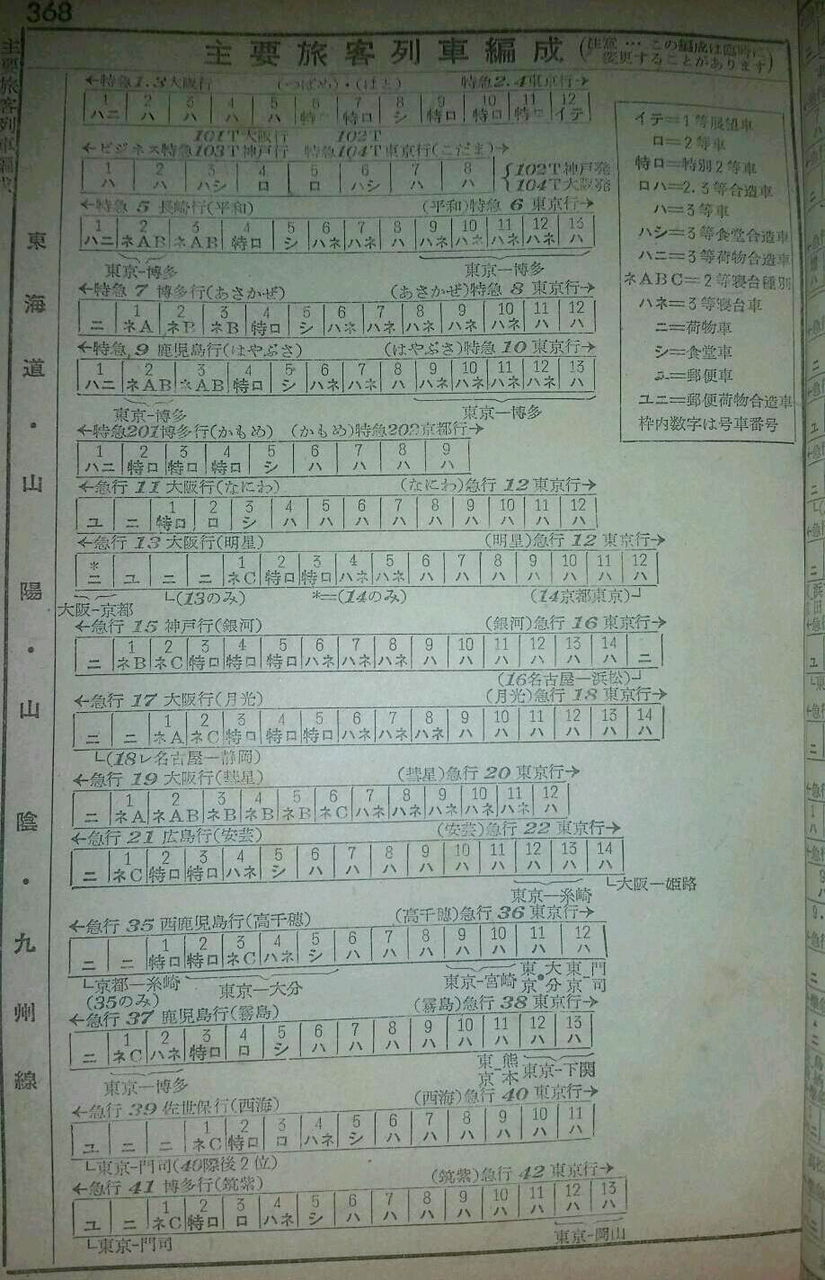 368
主要旅客列車編成 (注意…この編成は臨時に変更することがあります)
主要旅客列車編成
東海道・山陽・山陰・九州線
←特急1.3大阪行 (つばめ)・(はと) 特急2.4東京行→
1 2 3 4 5 6 7 8 9 10 11 12
ハニ ハ ハ ハ ハ 特ロ 特ロ シ 特ロ 特ロ 特ロ イテ
101T大阪行 102T
←ビジネス特急103T神戸行 特急104T東京行(こだま)→
1 2 3 4 5 6 7 8
ハ ハ ハシ ロ ロ ハシ ハ ハ
102T神戸発
104T大阪発
←特急 5 長崎行(平和) (平和)特急 6 東京行→
1 2 3 4 5 6 7 8 9 10 11 12 13
ハニ ネAB ネAB 特ロ シ ハネ ハネ ハ ハネ ハネ ハネ ハネ ハ
東京-博多 東京―博多
←特急 7 博多行(あさかぜ) (あさかぜ)特急 8 東京行→
1 2 3 4 5 6 7 8 9 10 11 12
ニ ネA ネB ネB 特ロ シ ハネ ハネ ハネ ハネ ハネ ハ ハ
←特急 9 鹿児島行(はやぶさ) (はやぶさ)特急 10 東京行→
1 2 3 4 5 6 7 8 9 10 11 12 13
ハニ ネAB ネAB 特ロ シ ハネ ハネ ハ ハネ ハネ ハネ ハネ ハ
東京-博多 東京―博多
←特急201博多行(かもめ) (かもめ)特急202京都行→
1 2 3 4 5 6 7 8 9
ハニ 特ロ 特ロ 特ロ シ ハ ハ ハ ハ
←急行 11 大阪行(なにわ) (なにわ)急行 12 東京行→
1 2 3 4 5 6 7 8 9 10 11 12
ユ ニ 特ロ ロ シ ハ ハ ハ ハ ハ ハ ハ ハ ハ
←急行 13 大阪行(明星) (明星)急行 12 東京行→
* 1 2 3 4 5 6 7 8 9 10 11 12
ニ ユ ニ ニ ネC 特ロ 特ロ ハネ ハネ ハ ハ ハ ハ ハ ハ ハ
大阪-京都 └(13のみ) *=(14のみ) (14京都東京)┘
←急行 15 神戸行(銀河) (銀河)急行 16 東京行→
1 2 3 4 5 6 7 8 9 10 11 12 13 14
ニ ネB ネC 特ロ 特ロ 特ロ ハネ ハネ ハネ ハ ハ ハ ハ ハ ハ ニ
(16名古屋―浜松)┘
←急行 17 大阪行(月光) (月光)急行 18 東京行→
1 2 3 4 5 6 7 8 9 10 11 12 13 14
ニ ニ ネA ネC 特ロ 特ロ 特ロ ハネ ハネ ハネ ハ ハ ハ ハ ハ ハ
└(18レ名古屋―静岡)
←急行 19 大阪行(彗星) (彗星)急行 20 東京行→
1 2 3 4 5 6 7 8 9 10 11 12
ニ ネA ネAB ネB ネB ネB ネC ハネ ハネ ハネ ハネ ハネ ハ
←急行 21 広島行(安芸) (安芸)急行 22 東京行→
1 2 3 4 5 6 7 8 9 10 11 12 13 14
ニ ネC 特ロ 特ロ ハネ シ ハ ハ ハ ハ ハ ハ ハ ハ ハ
東京―糸崎 └大阪―姫路
←急行 35 西鹿児島行(高千穂) (高千穂)急行 36 東京行→
1 2 3 4 5 6 7 8 9 10 11 12
ニ ニ 特ロ 特ロ ネC ハネ シ ハ ハ ハ ハ ハ ハ ハ
└京都―糸崎 (35のみ) 東京―大分 東京-宮崎 東京・大分 東京-門司
←急行 37 鹿児島行(霧島) (霧島)急行 38 東京行→
1 2 3 4 5 6 7 8 9 10 11 12 13
ニ ネC ハネ 特ロ ロ シ ハ ハ ハ ハ ハ ハ ハ ハ
東京―博多 東京-熊本 東京-下関
←急行 39 佐世保行(西海) (西海)急行 40 東京行→
1 2 3 4 5 6 7 8 9 10 11
ユ ニ ニ ネC 特ロ ロ ハネ シ ハ ハ ハ ハ ハ ハ
└東京-門司(40際後2位)
←急行 41 博多行(筑紫) (筑紫)急行 42 東京行→
1 2 3 4 5 6 7 8 9 10 11 12 13
ユ ニ ネC 特ロ ロ ハネ シ ハ ハ ハ ハ ハ ハ ハ ハ
└東京-門司 東京-岡山
イテ=1等展望車
ロ=2等車
特ロ=特別2等車
ロハ=2.3等合造車
ハ=3等車
ハシ=3等食堂合造車
ハニ=3等荷物合造車
ネABC=2等寝台種別
ハネ=3等寝台車
ニ=荷物車
シ=食堂車
ユ=郵便車
ユニ=郵便荷物合造車
枠内数字は号車番号